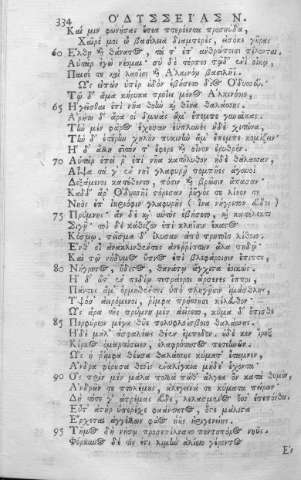 334 ὈΔΥΣΣΕΙΑΣ Ν.
Καί μιν φωνήσας ἔπεα πτερόεντα προσηύδα,
Χαῖρέ μοι ὦ βασίλεια διαμπερὲς, εἰσόκε γῆρας
60 Ἔλθῃ καὶ θάνατος, τά τ' ἐπ' ἀνθρώποισι πέλονται.
Αὐτὰρ ἐγὼ νέομαι· σὺ δὲ τέρπεο τῷδ' ἐνὶ οἴκῳ,
Παισί τε καὶ λαοῖσι καὶ Ἀλκινόῳ βασιλῆϊ.
Ὣς εἰπὼν ὑπὲρ οὐδὸν ἐβήσετο δῖος Ὀδυσσεύς.
Τῷ δ' ἅμα κήρυκα προΐει μένος Ἀλκινόοιο,
65 Ἡγεῖσθαι ἐπὶ νῆα θοὴν καὶ θῖνα θαλάσσης.
Ἀρήτη δ' ἄρα οἱ δμωὰς ἅμ' ἔπεμπε γυναῖκας·
Τὴν μὲν φᾶρος ἔχουσαν ἐϋπλυνὲς ἠδὲ χιτῶνα,
Τὴν δ' ἑτέρην χηλὸν πυκινὴν ἅμ' ἔπεμπε κομίζειν·
Ἡ δ' ἄλλη σῖτόν τ' ἔφερε καὶ οἶνον ἐρυθρόν.
70 Αὐτὰρ ἐπεί ῥ' ἐπὶ νῆα κατήλυθον ἠδὲ θάλασσαν,
Αἶψα τά γ' ἐν νηῒ γλαφυρῇ πομπῆες ἀγαυοὶ
Δεξάμενοι κατέθεντο, πόσιν καὶ βρῶσιν ἅπασαν·
Καδδ' ἄρ' Ὀδυσσῆϊ στόρεσαν ῥῆγός τε λίνον τε
Νηὸς ἐπ' ἰκριόφιν γλαφυρῆς (ἵνα νήγρετον εὕδοι)
75 Πρύμνης· ἂν δὲ καὶ αὐτὸς ἐβήσετο, καὶ κατέλεκτο
Σιγῇ· τοὶ δὲ κάθιζον ἐπὶ κληῖσιν ἕκαστοι
Κόσμῳ, πεῖσμα δ' ἔλυσαν ἀπὸ τρητοῖο λίθοιο.
Ἔνθ' οἱ ἀνακλινθέντες ἀνερρίπτουν ἅλα πηδῷ·
Καὶ τῷ νήδυμος ὕπνος ἐπὶ βλεφάροισιν ἔπιπτε,
80 Νήγρετος, ἥδιστος, θανάτῳ ἄγχιστα ἐοικώς.
Ἡ δ' ὥς τ' ἐν πεδίῳ τετράοροι ἄρσενες ἵπποι,
Πάντες ἅμ' ὁρμηθέντες ὑπὸ πληγῇσιν ἱμάσθλης,
Ὑψόσ' ἀειρόμενοι, ῥίμφα πρήσσουσι κέλευθον·
Ὣς ἄρα τῆς πρύμνη μὲν ἀείρετο, κῦμα δ' ὄπισθε
85 Πορφύρεον μέγα θῦε πολυφλοίσβοιο θαλάσσης.
Ἡ δὲ μάλ' ἀσφαλέως θέεν ἔμπεδον, οὐδέ κεν ἴρηξ
Κίρκος ὁμαρτήσειεν, ἐλαφρότατος πετεηνῶν·
Ὣς ἡ ῥίμφα θέουσα θαλάσσης κύματ' ἔταμνεν,
Ἄνδρα φέρουσα θεοῖς ἐναλίγκια μήδε' ἔχοντα·
90 Ὃς πρὶν μὲν μάλα πολλὰ πάθ' ἄλγεα ὃν κατὰ θυμὸν,
Ἀνδρῶν τε πτολέμους, ἀλεγεινά τε κύματα πείρων·
Δὴ τότε γ' ἀτρέμας εὗδε, λελασμένος ὅσσ' ἐπεπόνθει.
Εὖτ' ἀστὴρ ὑπερέσχε φαάντατος, ὅς τε μάλιστα
Ἔρχεται ἀγγέλλων φάος ἠοῦς ἠριγενείης·
95 Τῆμος δὴ νήσῳ προσεπίλνατο ποντοπόρος νηῦς.
Φόρκυνος δέ τις ἐστι λιμὴν ἁλίοιο γέροντος
Ἐν